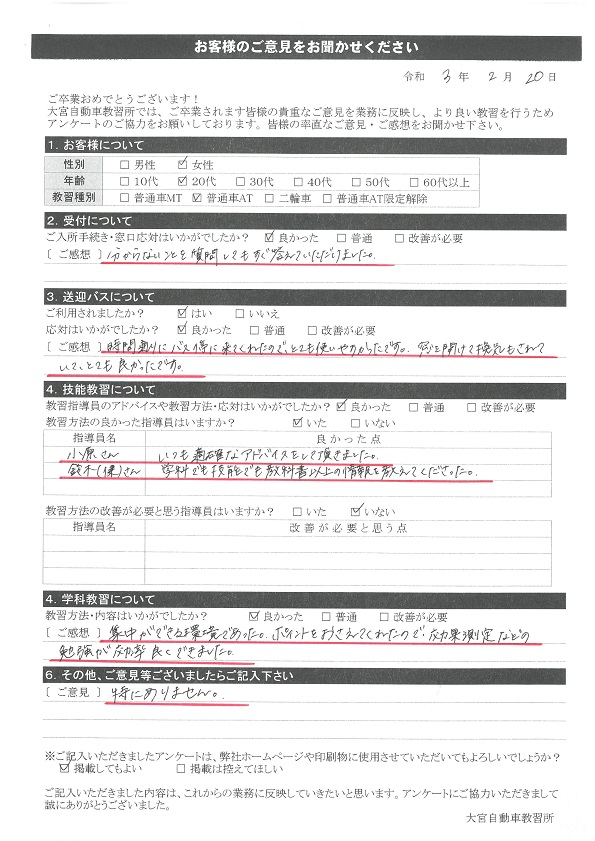 お客様のご意見をお聞かせください
令和 3 年 2 月 20 日
ご卒業おめでとうございます！
大宮自動車教習所では、ご卒業されます皆様の貴重なご意見を業務に反映し、より良い教習を行うため
アンケートのご協力をお願いしております。皆様の率直なご意見・ご感想をお聞かせ下さい。
1. お客様について
性別 □ 男性 ☑ 女性
年齢 □ 10代 ☑ 20代 □ 30代 □ 40代 □ 50代 □ 60代以上
教習種別 □ 普通車MT ☑ 普通車AT □ 二輪車 □ 普通車AT限定解除
2. 受付について
ご入所手続き・窓口応対はいかがでしたか？ ☑ 良かった □ 普通 □ 改善が必要
［ ご感想 ］分からないことを質問してもすぐ答えていただけました。
3. 送迎バスについて
ご利用されましたか？ ☑ はい □ いいえ
応対はいかがでしたか？ ☑ 良かった □ 普通 □ 改善が必要
［ ご感想 ］時間通りにバス停に来てくれたので、とても使いやすかったです。窓を開けて換気もされて
いて、とても良かったです。
4. 技能教習について
教習指導員のアドバイスや教習方法・応対はいかがでしたか？ ☑ 良かった □ 普通 □ 改善が必要
教習方法の良かった指導員はいますか？ ☑ いた □ いない
指導員名 良かった点
小原さん いつも適確なアドバイスをして頂きました。
鈴木(健)さん 学科でも技能でも教科書以上の情報を教えてくださった。
教習方法の改善が必要と思う指導員はいますか？ □ いた ☑ いない
指導員名 改善が必要と思う点
4. 学科教習について
教習方法・内容はいかがでしたか？ ☑ 良かった □ 普通 □ 改善が必要
［ ご感想 ］集中ができる環境であった。ポイントをおさえてくれたので効果測定などの
勉強が効率良くできました。
6. その他、ご意見等ございましたらご記入下さい
［ ご意見 ］特にありません。
※ご記入いただきましたアンケートは、弊社ホームページや印刷物に使用させていただいてもよろしいでしょうか？
☑ 掲載してもよい □ 掲載は控えてほしい
ご記入いただきました内容は、これからの業務に反映していきたいと思います。アンケートにご協力いただきまして
誠にありがとうございました。
大宮自動車教習所